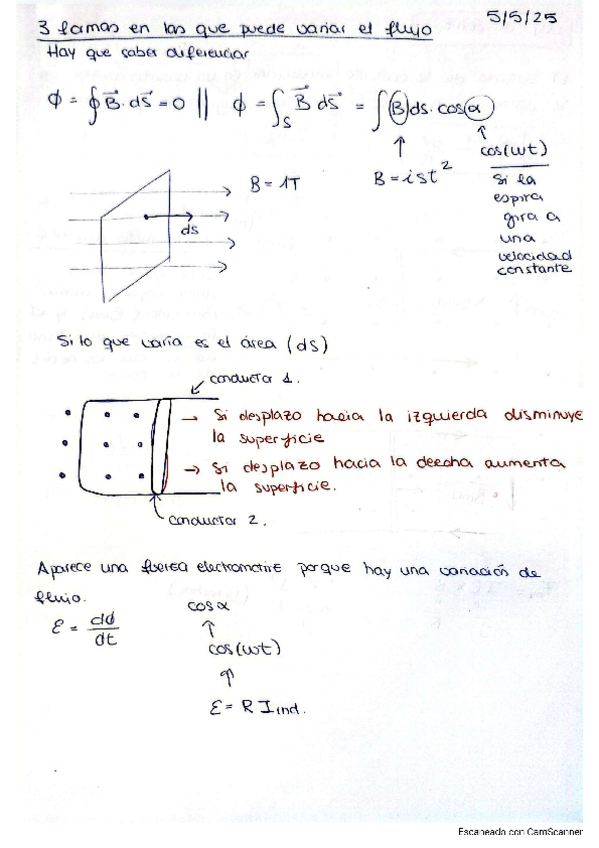 5/5/25
3 formas en las que puede variar el flujo
Hay que saber diferenciar
ϕ = ∮ B⃗ · ds⃗ = 0 || ϕ = ∫_S B⃗ ds⃗ = ∫ B ds · cos α
cos(wt)
B = 1T
B = ist²
Si la
espira
gira a
una
velocidad
constante
ds
Si lo que varía es el área (ds)
conductor 1.
→ Si desplazo hacia la izquierda disminuye
la superficie
→ Si desplazo hacia la deecha aumenta
la superficie.
conductor 2.
Aparece una fuerea electromotire porque hay una variación de
flujo.
ε = dϕ/dt
cos α
↑
cos(wt)
↑
ε = R I ind.
Escaneado con CamScanner